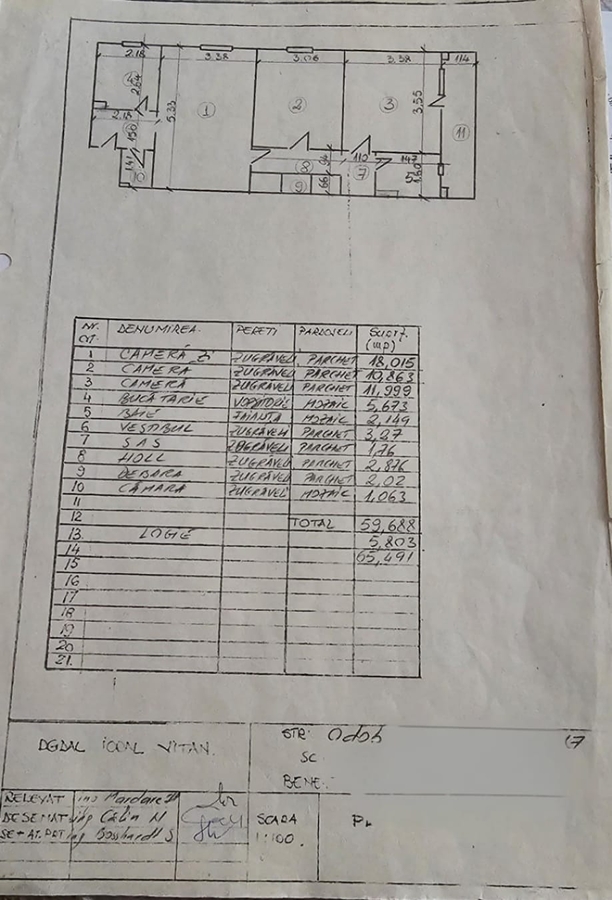 2.18
3.38
3.06
3.38
114
4
2.64
5.33
1
2
3
3.55
11
2.15
150
94
110
147
8
7
5
1.60
1.41
10
9
66
NR. CRT. DENUMIREA PERETI PARDOSELI SUPRF. (mp)
1 CAMERĂ ZUGRĂVELI PARCHET 18,015
2 CAMERA ZUGRĂVELI PARCHET 10,863
3 CAMERĂ ZUGRĂVELI PARCHET 11,999
4 BUCĂTARIE MOZAIC 5,673
5 BAIE FAIANTA MOZAIC 2,149
6 VESTIBUL ZUGRĂVELI PARCHET 3,27
7 SAS ZUGRĂVELI PARCHET 1,76
8 HOLL ZUGRĂVELI PARCHET 2,876
9 DEBARA ZUGRĂVELI PARCHET 2,02
10 CĂMARA ZUGRĂVELI MOZAIC 1,063
11
12 TOTAL 59,688
13. LOGIE 5,803
14 65,491
15
16
17
18
19
20
21.
DGDAL ICOAL VITAN.
STR: Odob 17
SC
BENE:
RELEVAT ing Mardare
DESENAT Călin M
ing Bosshardt S
SCARA 1:100.
PL